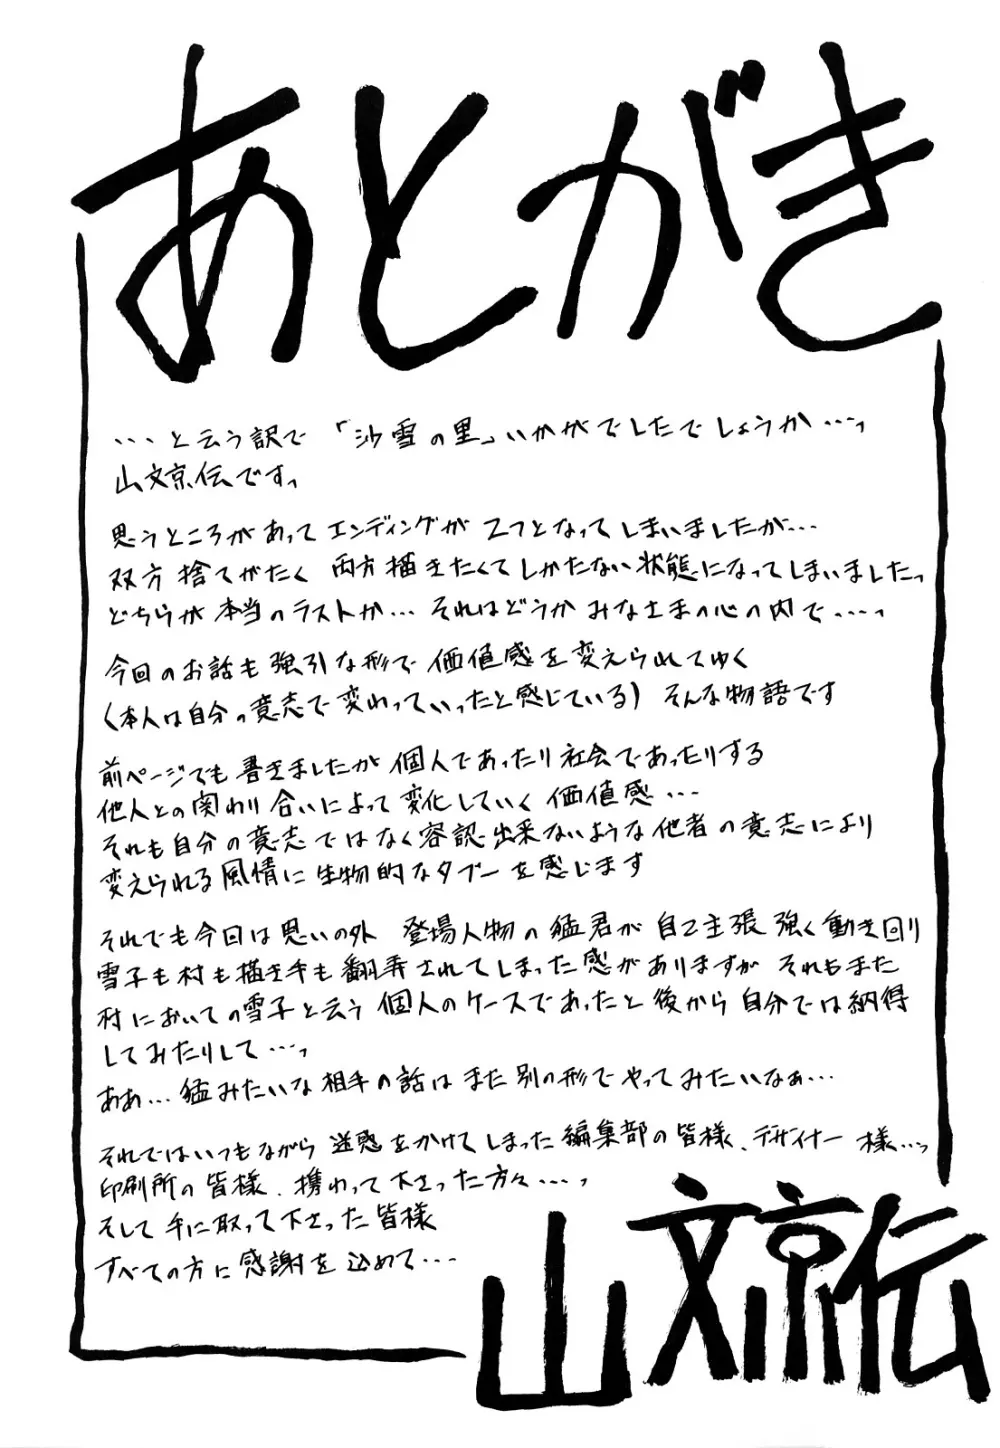 あとがき
…と云う訳で「沙雪の里」いかがでしたでしょうか…っ
山文京伝ですっ
思うところがあって エンディングが 2つとなってしまいましたが…
双方捨てがたく 両方描きたくてしかたない状態になってしまいましたっ
どちらが本当のラストか…それはどうか みなさまの心の内で…っ
今回のお話も強引な形で価値感を変えられてゆく
(本人は自分の意志で変わっていったと感じている) そんな物語です
前ページでも書きましたが 個人であったり社会であったりする
他人との関わり合いによって変化していく価値感…
それも自分の意志ではなく容認出来ないような他者の意志により
変えられる風情に生物的なタブーを感じます
それでも今回は思いの外 登場人物の猛君が自己主張強く動き回り
雪子も村も描き手も翻弄されてしまった感がありますが それもまた
村においての雪子と云う個人のケースであったと後から自分では納得
してみたりして…っ
ああ…猛みたいな相手の話はまた別の形でやってみたいなぁ…
それではいつもながら迷惑をかけてしまった編集部の皆様、デザイナー様…っ
印刷所の皆様、携わって下さった方々…っ
そして手に取って下さった皆様
すべての方に感謝を込めて…
山文京伝